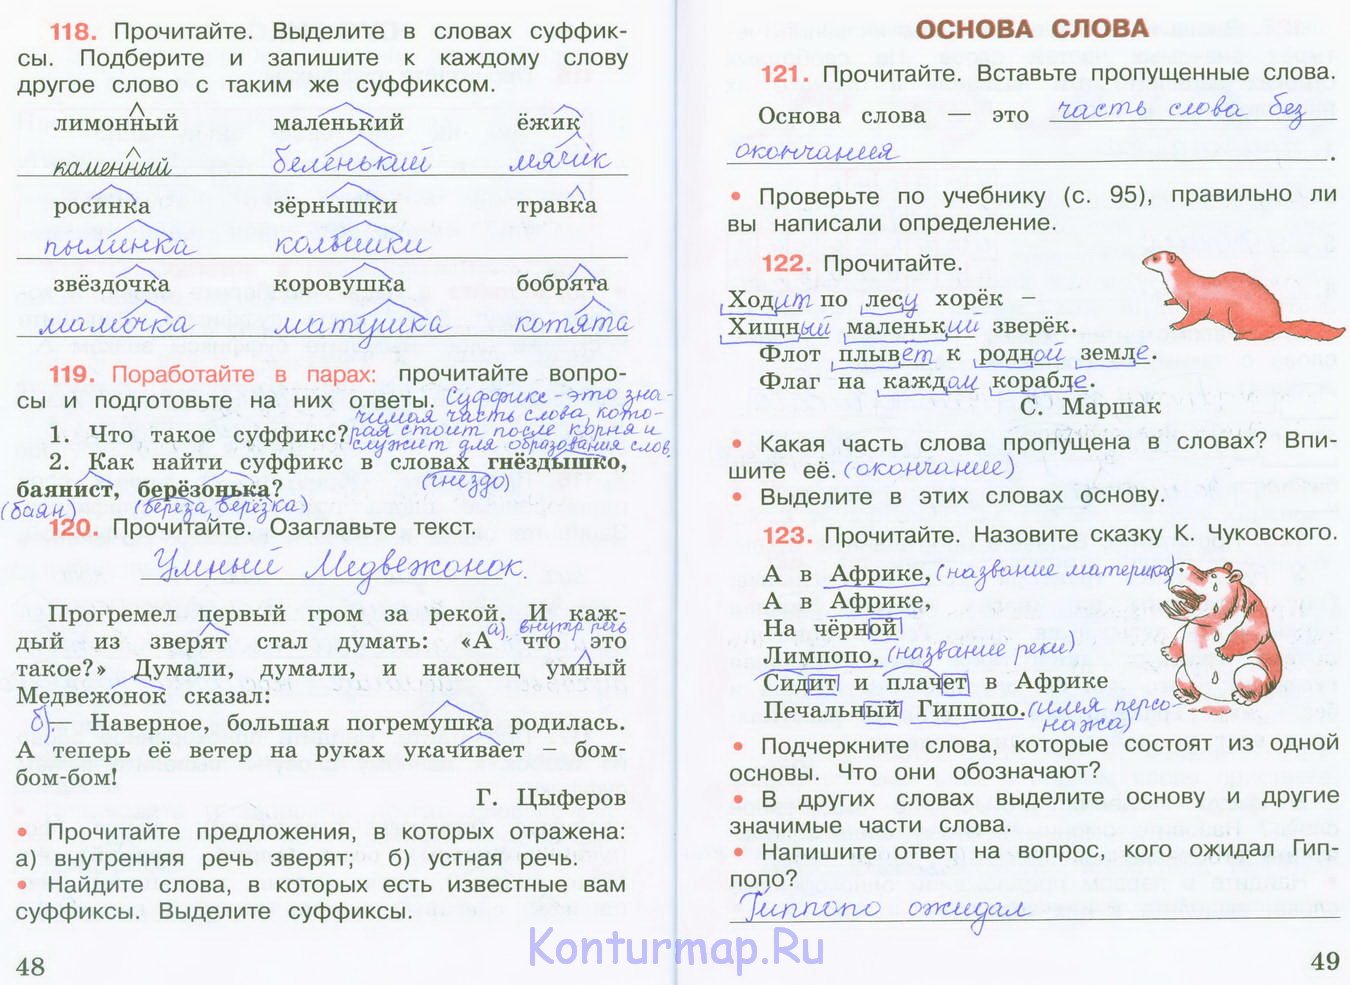 118. Прочитайте. Выделите в словах суффик-
сы. Подберите и запишите к каждому слову
другое слово с таким же суффиксом.
лимонный маленький ёжик
каменный беленький мячик
росинка зёрнышки травка
пылинка колышки
звёздочка коровушка бобрята
мамочка матушка котята
119. Поработайте в парах: прочитайте вопро-
сы и подготовьте на них ответы. Суффикс - это зна-
чимая часть слова, кото-
1. Что такое суффикс? рая стоит после корня и
служит для образования слов.
2. Как найти суффикс в словах гнёздышко,
(гнездо)
баянист, берёзонька?
(баян) (берёза, берёзка)
120. Прочитайте. Озаглавьте текст.
Умный Медвежонок.
Прогремел первый гром за рекой. И каж-
а) внутр речь
дый из зверят стал думать: «А что это
такое?» Думали, думали, и наконец умный
Медвежонок сказал:
б) — Наверное, большая погремушка родилась.
А теперь её ветер на руках укачивает – бом-
бом-бом!
Г. Цыферов
• Прочитайте предложения, в которых отражена:
а) внутренняя речь зверят; б) устная речь.
• Найдите слова, в которых есть известные вам
суффиксы. Выделите суффиксы.
48
ОСНОВА СЛОВА
121. Прочитайте. Вставьте пропущенные слова.
Основа слова — это часть слова без
окончания.
• Проверьте по учебнику (с. 95), правильно ли
вы написали определение.
122. Прочитайте.
Ходит по лесу хорёк –
Хищный маленький зверёк.
Флот плывёт к родной земле.
Флаг на каждом корабле.
С. Маршак
• Какая часть слова пропущена в словах? Впи-
шите её. (окончание)
• Выделите в этих словах основу.
123. Прочитайте. Назовите сказку К. Чуковского.
А в Африке, (название материка)
А в Африке,
На чёрной
Лимпопо, (название реки)
Сидит и плачет в Африке
Печальный Гиппопо. (имя персо-
нажа)
• Подчеркните слова, которые состоят из одной
основы. Что они обозначают?
• В других словах выделите основу и другие
значимые части слова.
• Напишите ответ на вопрос, кого ожидал Гип-
попо?
Гиппопо ожидал
49
Konturmap.Ru